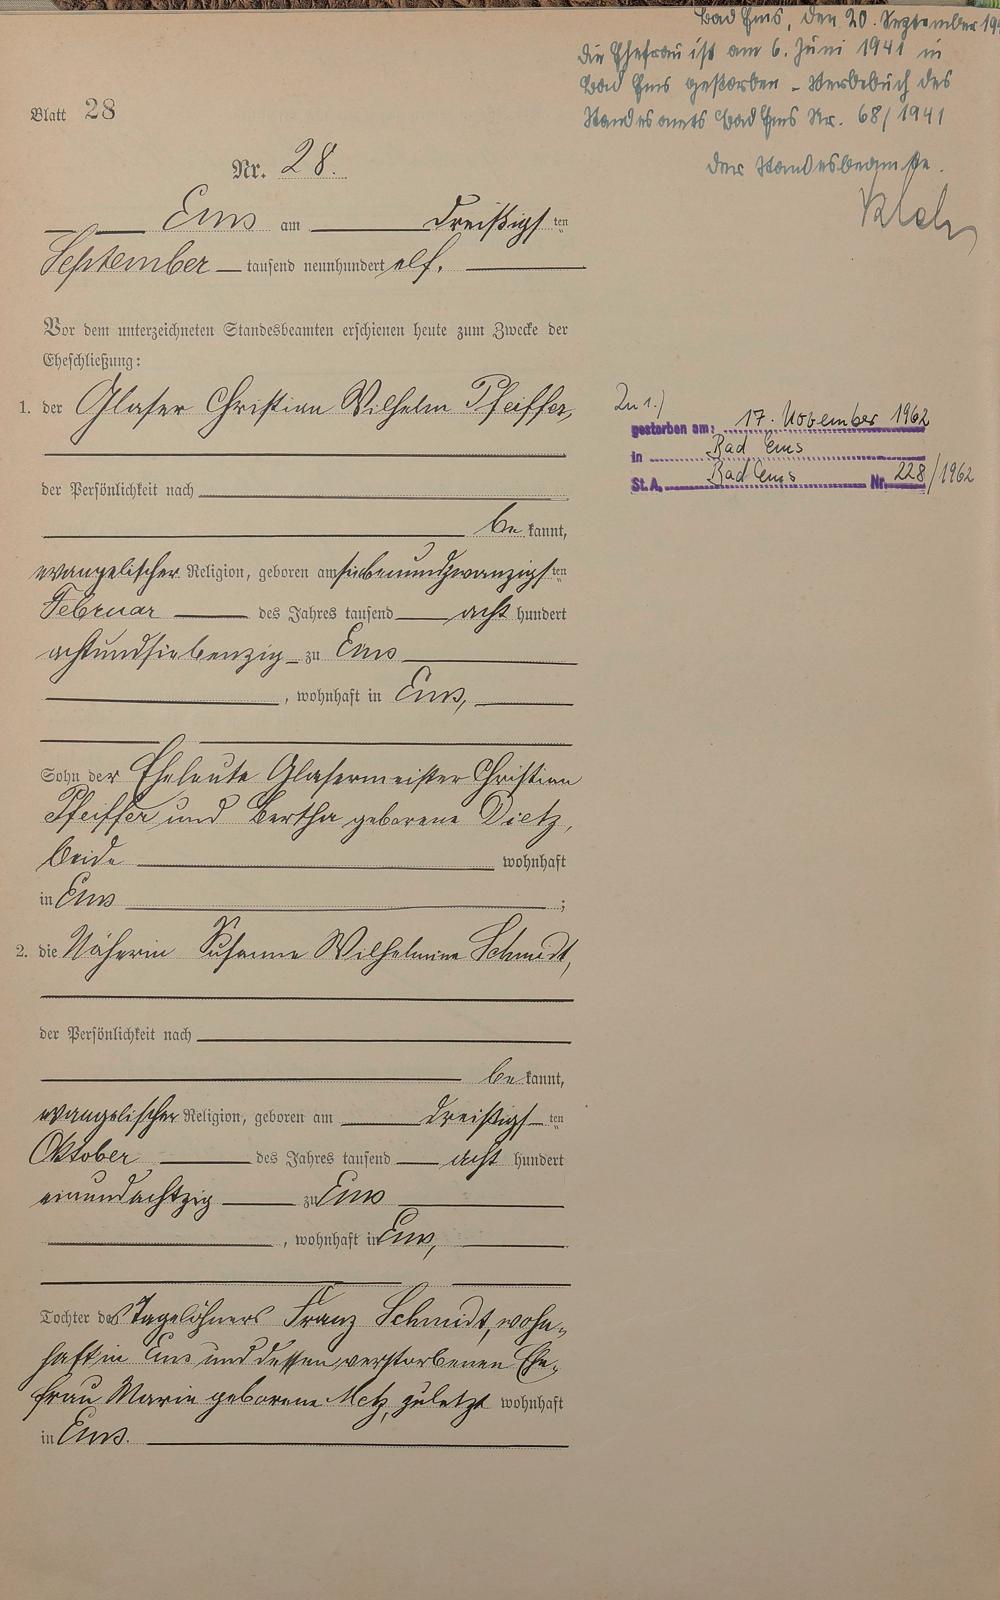 Bad Ems, den 20. September 19
die Ehefrau ist am 6. Juni 1941 in
Bad Ems gestorben - Sterbebuch des
Standesamts Bad Ems Nr. 68/1941
Der Standesbeamte.
Blatt 28
Nr. 28.
Ems am dreißigsten
September tausend neunhundert elf.
Vor dem unterzeichneten Standesbeamten erschienen heute zum Zwecke der
Eheschließung:
1. der Glaser Christian Wilhelm Pfeiffer,
der Persönlichkeit nach
bekannt,
evangelischer Religion, geboren am siebenundzwanzigsten
Februar des Jahres tausend acht hundert
achtundsiebenzig zu Ems
, wohnhaft in Ems,
Sohn der Eheleute Glasermeister Christian
Pfeiffer und Bertha geborene Dietz,
beide wohnhaft
in Ems ;
2. die Näherin Susanna Wilhelmine Schmidt,
der Persönlichkeit nach
bekannt,
evangelischer Religion, geboren am dreißigsten
Oktober des Jahres tausend acht hundert
einundachtzig zu Ems
, wohnhaft in Ems,
Tochter des Tagelöhners Franz Schmidt, wohn-
haft in Ems und dessen verstorbenen Ehe-
frau Marie geborene Metz, zuletzt wohnhaft
in Ems.
Zu 1.)
gestorben am: 17. November 1962
in Bad Ems
St.A. Bad Ems Nr. 228/1962